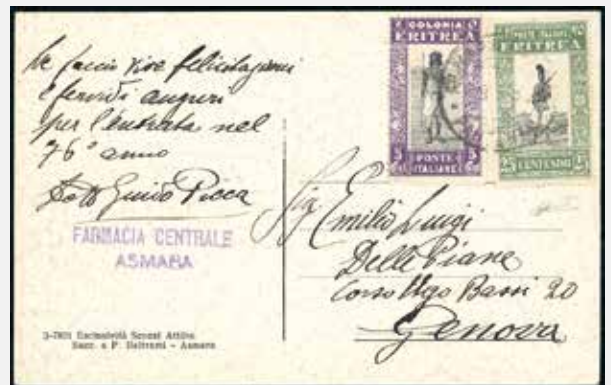 Le faccio vive felicitazioni
e fervidi auguri
per l'entrata nel
76° anno
Dott Guido Picca
FARMACIA CENTRALE
ASMARA
3-7801 Esclusività Scozzi Attilio
Succ. a P. Beltrami - Asmara
COLONIA
ERITREA
5 5
POSTE
ITALIANE
POSTE ITALIANE
ERITREA
25 CENTESIMI 25
Sig. Emilio Luigi
Delle Piane
Corso Ugo Bassi 20
Genova